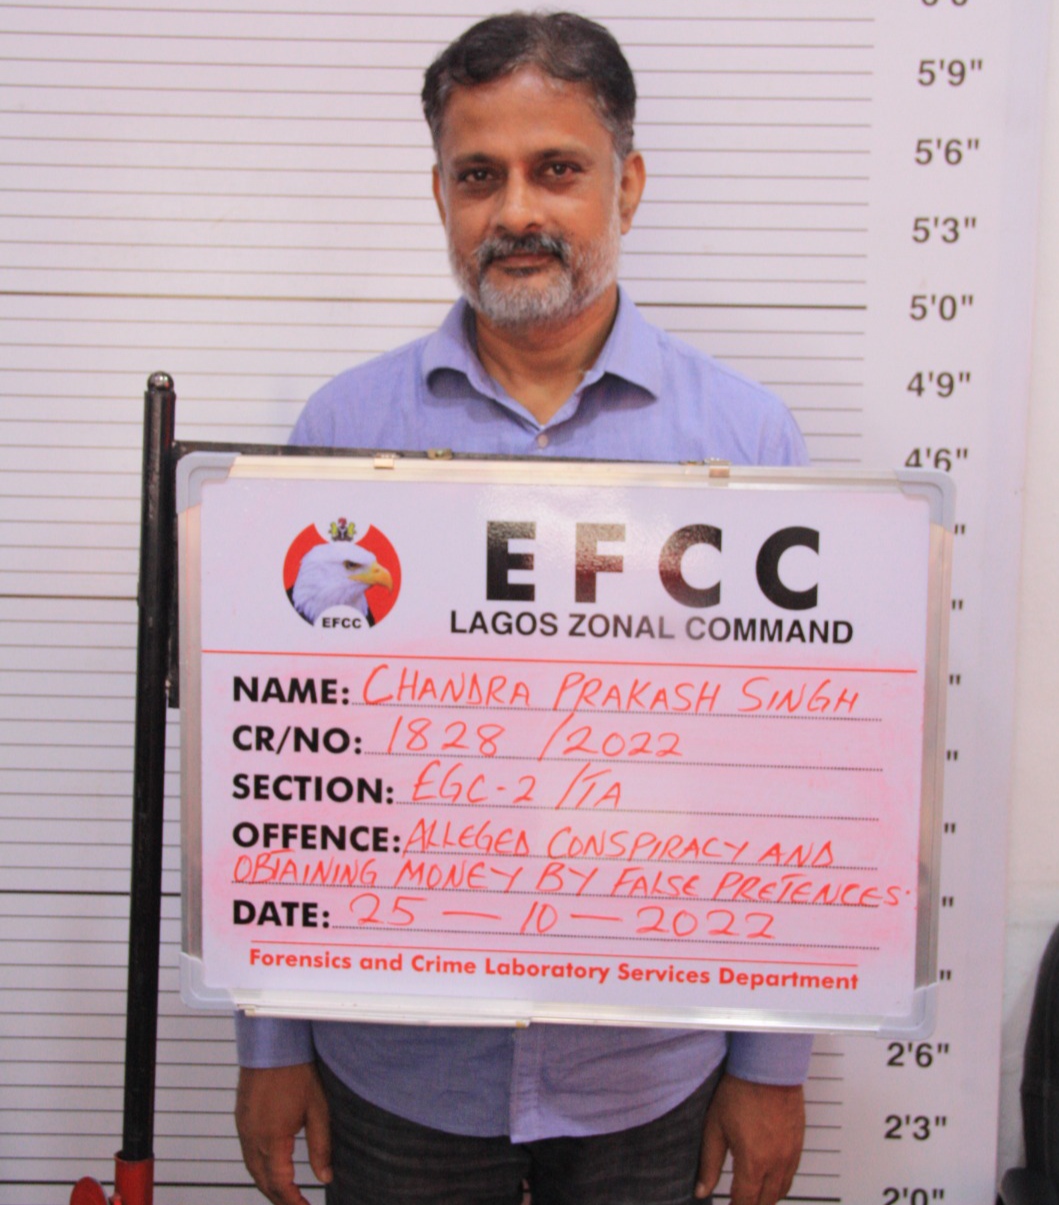 5'9"
5'6"
5'3"
5'0"
4'9"
4'6"
EFCC
EFCC
LAGOS ZONAL COMMAND
NAME: CHANDRA PRAKASH SINGH
CR/NO: 1828 /2022
SECTION: EGC-2 /TA
OFFENCE: ALLEGED CONSPIRACY AND
OBTAINING MONEY BY FALSE PRETENCES.
DATE: 25 — 10 — 2022
Forensics and Crime Laboratory Services Department
2'6"
2'3"
2'0"